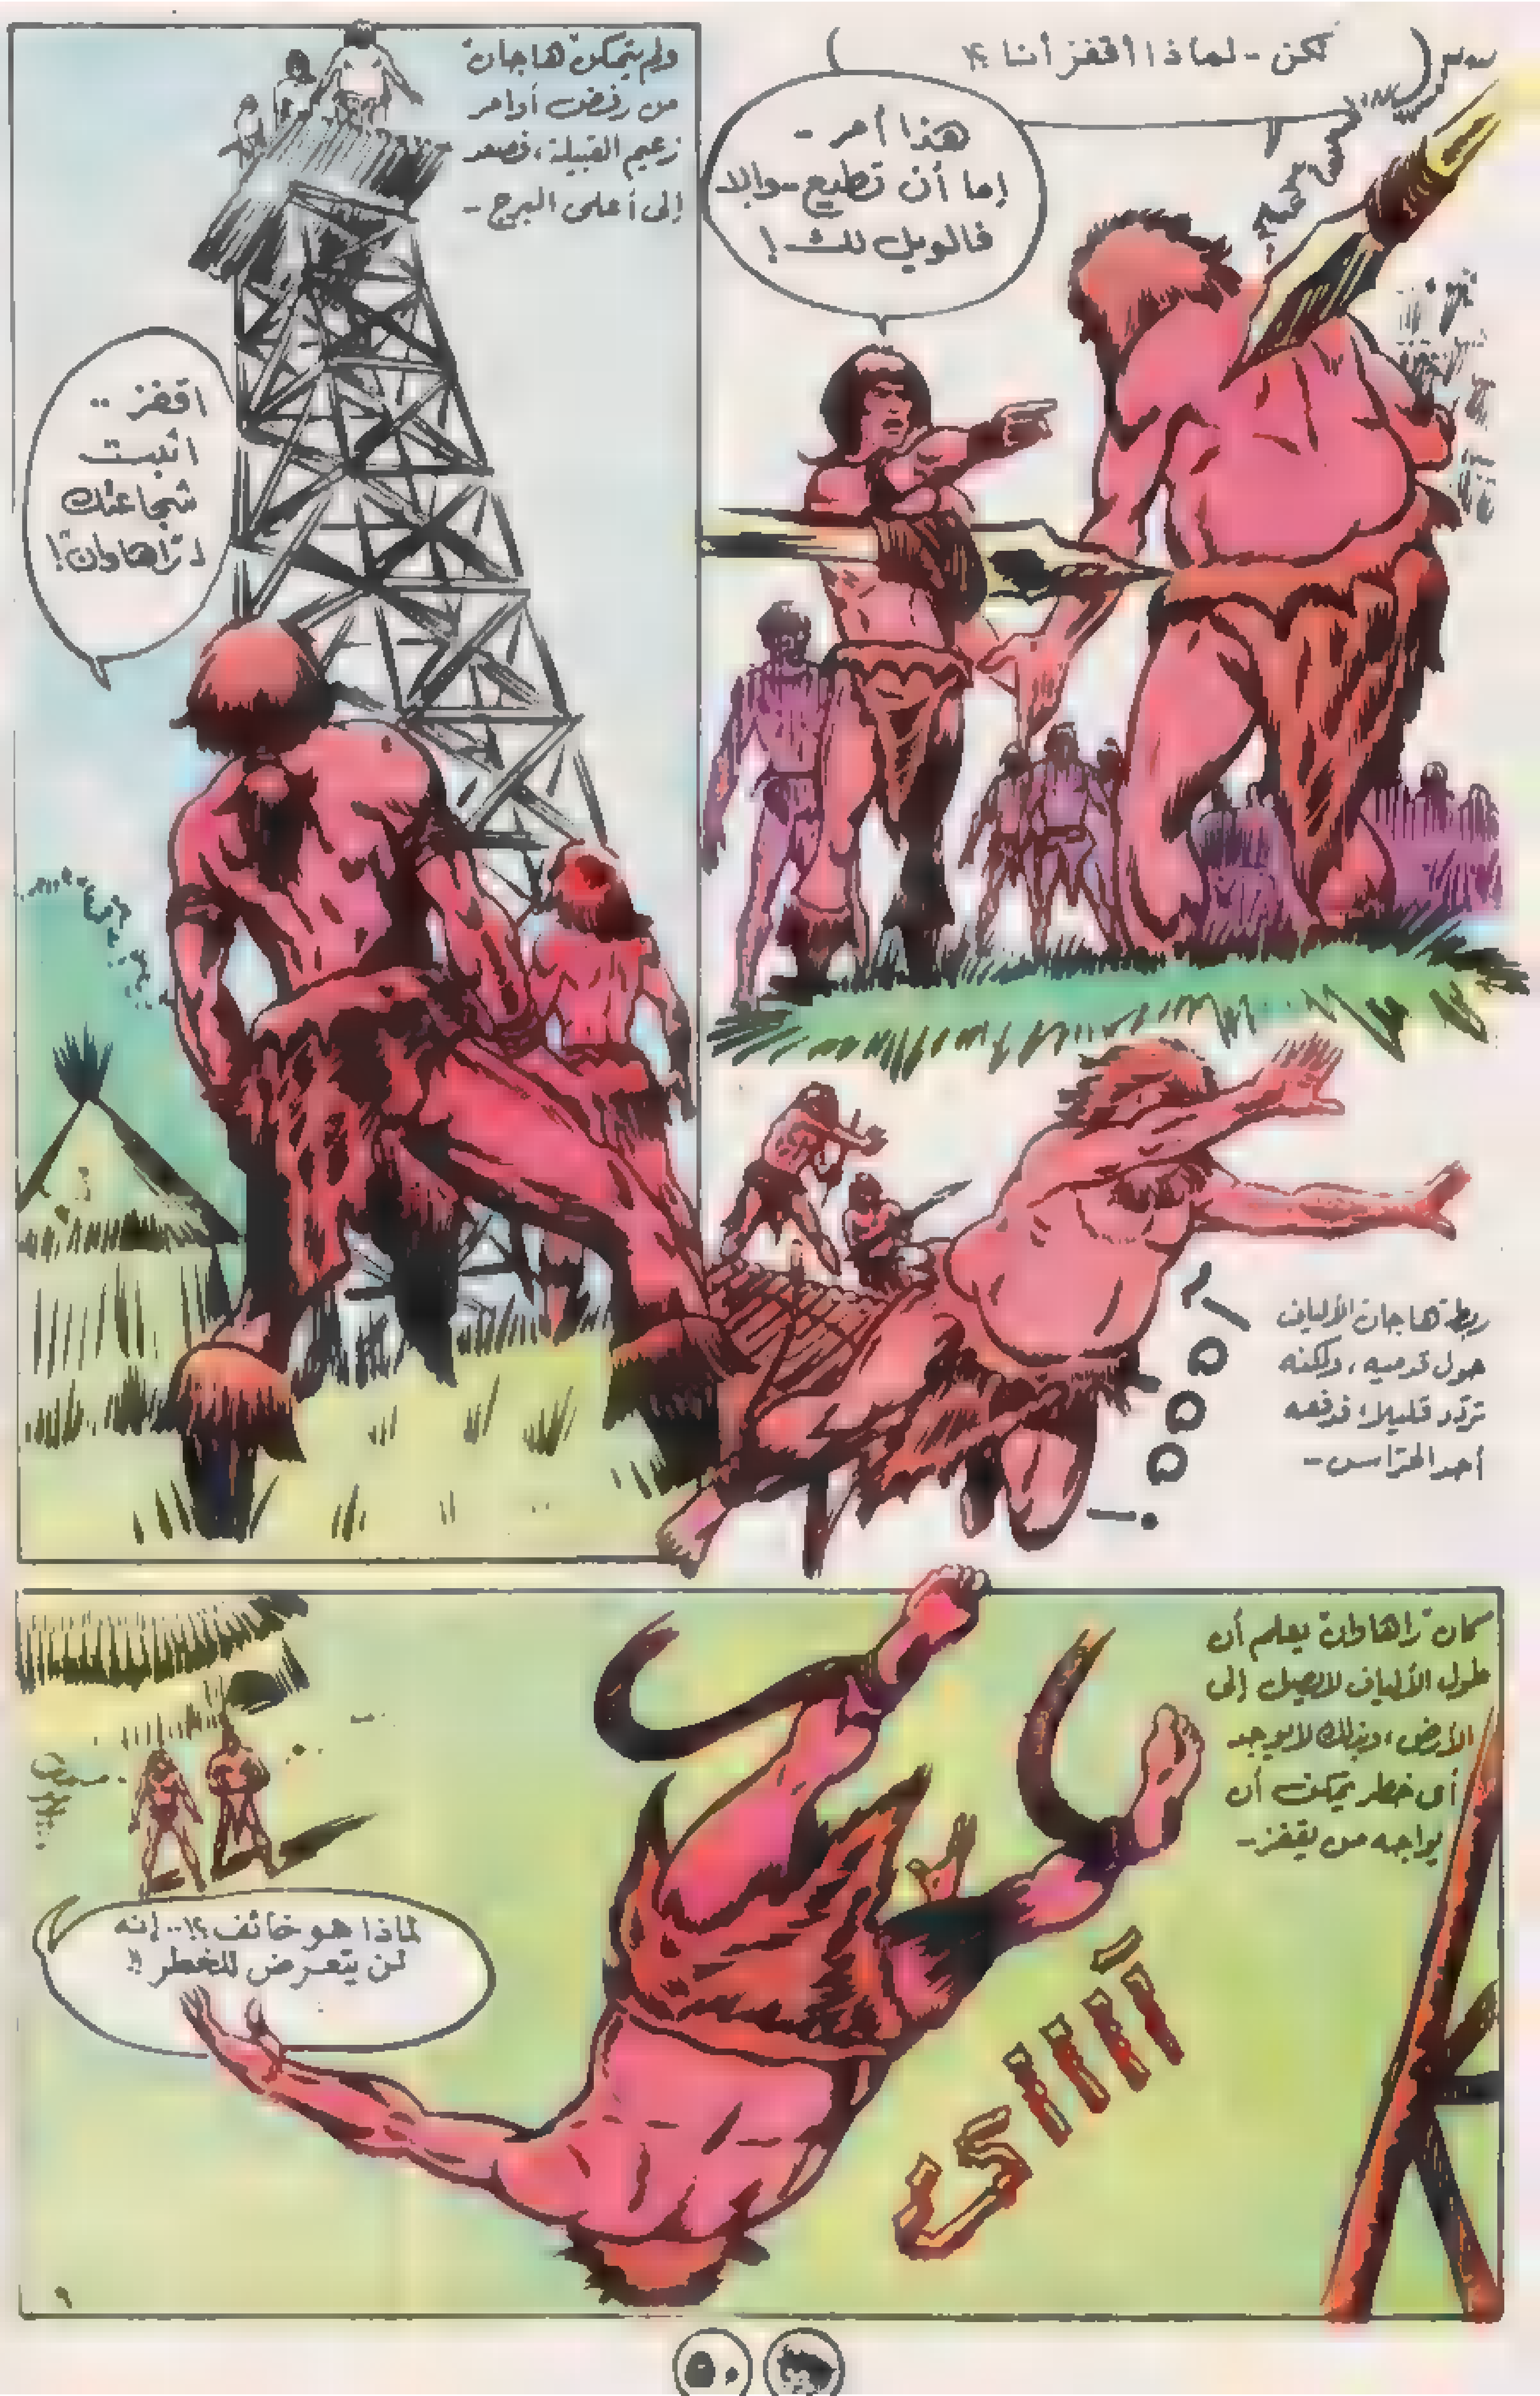 لكن - لماذا أقفز أنا ؟!
هذا أمر -
إما أن تطيع - وإلا
فالويل لك !
ولم يتمكن هاجان
من رفض أوامر
زعيم القبيلة، فصعد
إلى أعلى البرج -
اقفز ..
اثبت
شجاعتك
لـ زاهاوان !
ربط هاجان الألياف
حول قدميه، ولكنه
تردد قليلا، فدفعه
أحد الحراس -
لا
ه
ه
ه
!
كان زاهاوان يعلم أن
طول الألياف لا يصل إلى
الأرض، وبذلك لا يوجد
أى خطر يمكن أن
يواجه من يقفز -
لماذا هو خائف ؟! .. إنه
لن يتعرض للخطر !!
آاااى
٩
٥٠